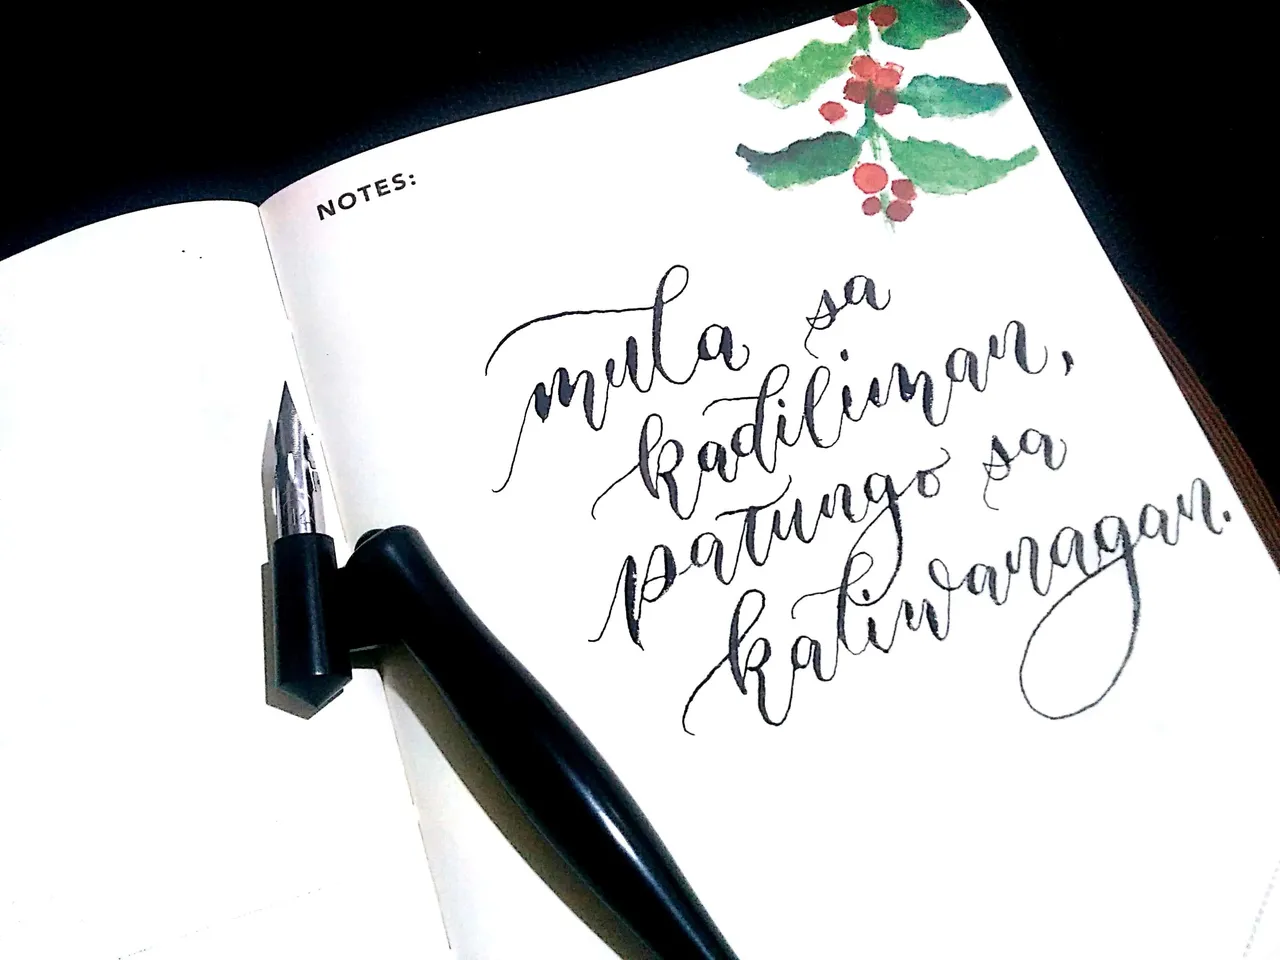 NOTES:
mula sa
kadiliman,
patungo sa
kaliwanagan.